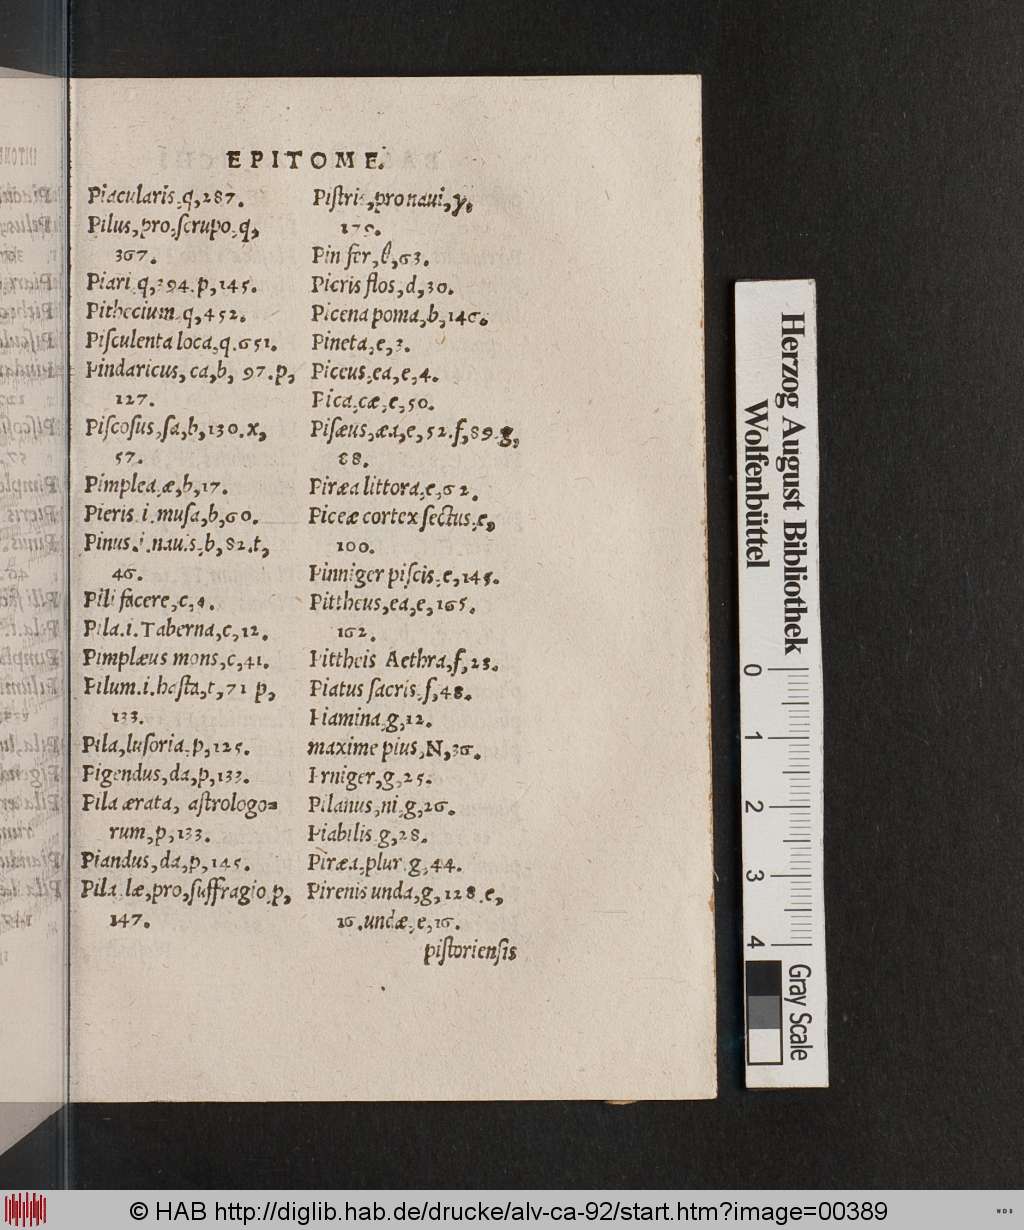 EPITOME.
Piacularis.q,287.
Pilus,pro,ſcrupo.q,
367.
Piari.q,394.p,145.
Pithecium.q,452.
Piſculenta loca,q.651.
Pindaricus, ca,b, 97.p,
127.
Piſcoſus,ſa,b,130.x,
57.
Pimplea.æ,b,17.
Pieris.i.muſa,b,60.
Pinus.i.nauis.b,82.t,
46.
Pili facere,c,4.
Pila.i.Taberna,c,12.
Pimplæus mons,c,41.
Pilum.i.haſta,t,71 p,
133.
Pila,luſoria.p,125.
Pigendus,da,p,133.
Pila ærata, aſtrologo=
rum,p,133.
Piandus,da,p,145.
Pila.læ,pro,ſuffragio.p,
147.
Piſtris,pro naui,y,
Pin fer,l,63.
Picris flos,d,30.
Picena poma,b,146.
Pineta,e,3.
Piceus,ea,e,4.
Pica.cæ,e,50.
Piſæus,æa,e,52.f,89.g,
88.
Piræa littora,e,62.
Piceæ cortex ſectus.e,
100.
Pinniger piſcis.e,145.
Pittheus,ea,e,165.
162.
Pittheis Aethra,f,23.
Piatus ſacris.f,48.
Piamina.g,12.
maxime pius,N,36.
Pilanus,ni.g,26.
Piabilis.g,28.
Piræa.plur.g,44.
Pirenis unda,g,128.e,
16.undæ.e,16.
piſtorienſis
Herzog August Bibliothek
Wolfenbüttel
0 1 2 3 4
Gray Scale
© HAB http://diglib.hab.de/drucke/alv-ca-92/start.htm?image=00389